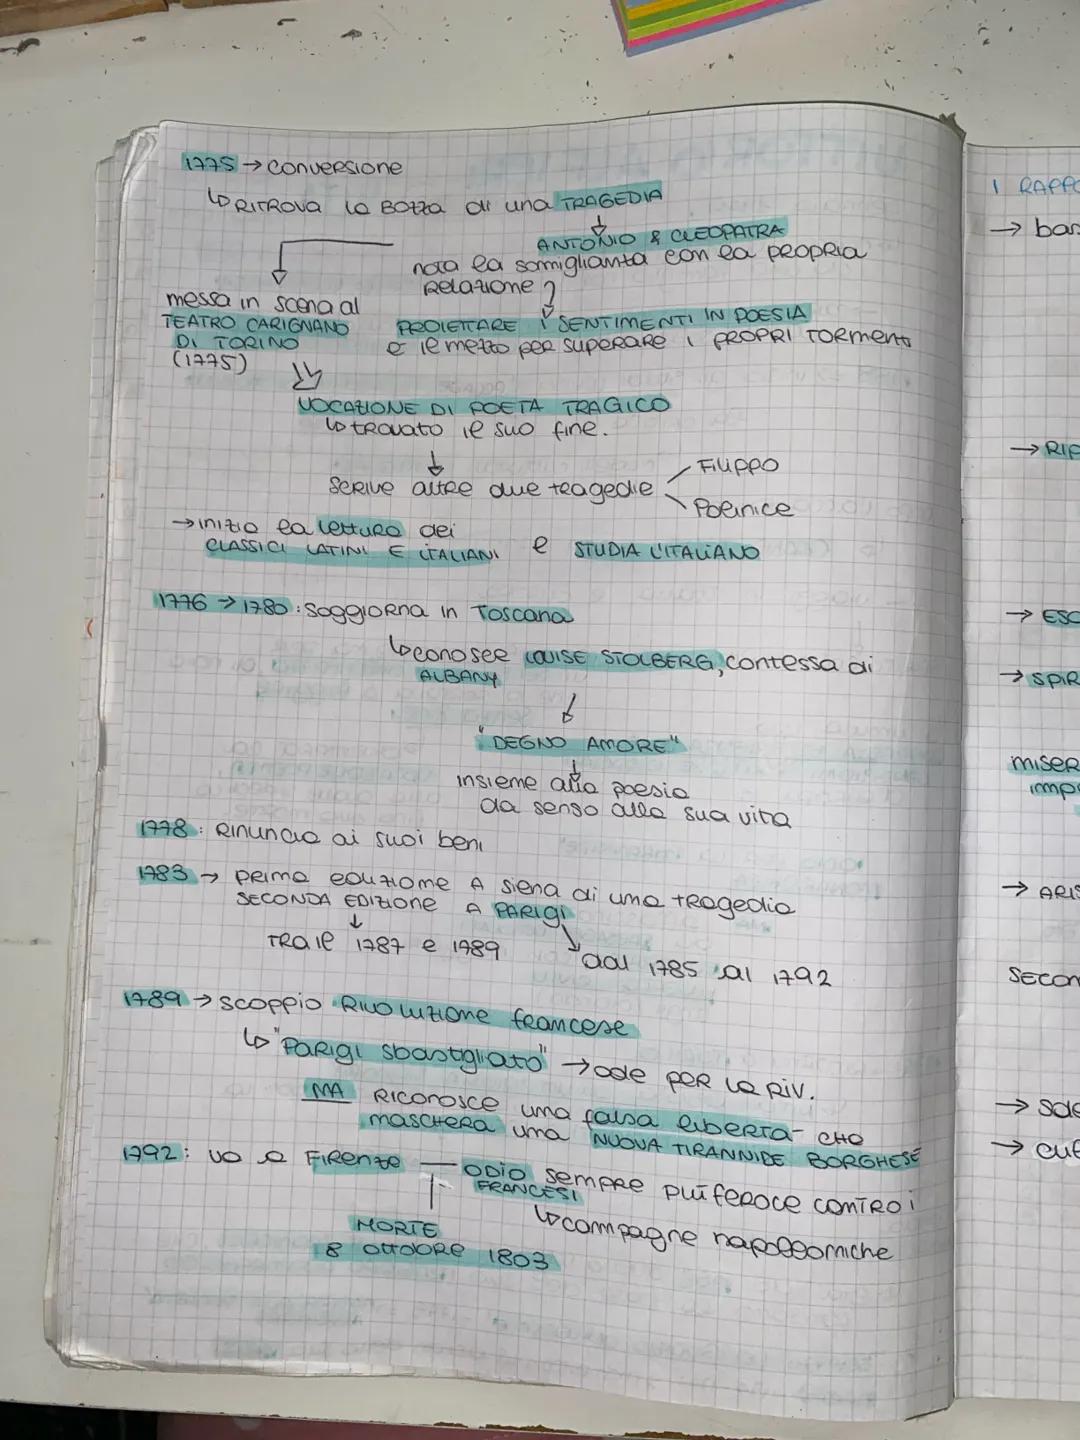 1775 → conversione
↳ RITROVA la BOZZA di una TRAGEDIA
ANTONIO & CLEOPATRA
nota la somiglianza con la PROPRIA
Relazione
messa in scena al
TEATRO CARIGNANO
DI TORINO
(1775)
PROIETTARE i SENTIMENTI IN POESIA
è il mezzo per superare i PROPRI TORMENTI
VOCAZIONE DI POETA TRAGICO
↳ trovato il suo fine.
SCRIVE altre due tragedie
Filippo
Polinice
→ inizia la lettura dei
CLASSICI LATINI E ITALIANI e STUDIA L'ITALIANO
1776 → 1780: Soggiorna in Toscana
↳ conosce LOUISE STOLBERG, contessa di
ALBANY
"DEGNO AMORE"
insieme alla poesia
da senso alla sua vita
1778: Rinuncia ai suoi beni
1783 → prima edizione A Siena di una tragedia
SECONDA EDIZIONE A PARIGI
TRA il 1787 e 1789
dal 1785 al 1792
1789 → scoppio Rivoluzione francese
↳ "Parigi sbastigliato" → ode per la Riv.
MA RICONOSCE una falsa libertà che
maschera una NUOVA TIRANNIDE BORGHESE
1792: va a FIRENZE — ODIO sempre più feroce contro i
FRANCESI
↳ campagne napoleoniche
MORTE
8 ottobre 1803
I RAPPO
→ bas
→ RIF
→ ESC
→ SPIR
miser
imp
→ ARIS
SECON
→ Sde
→ cul